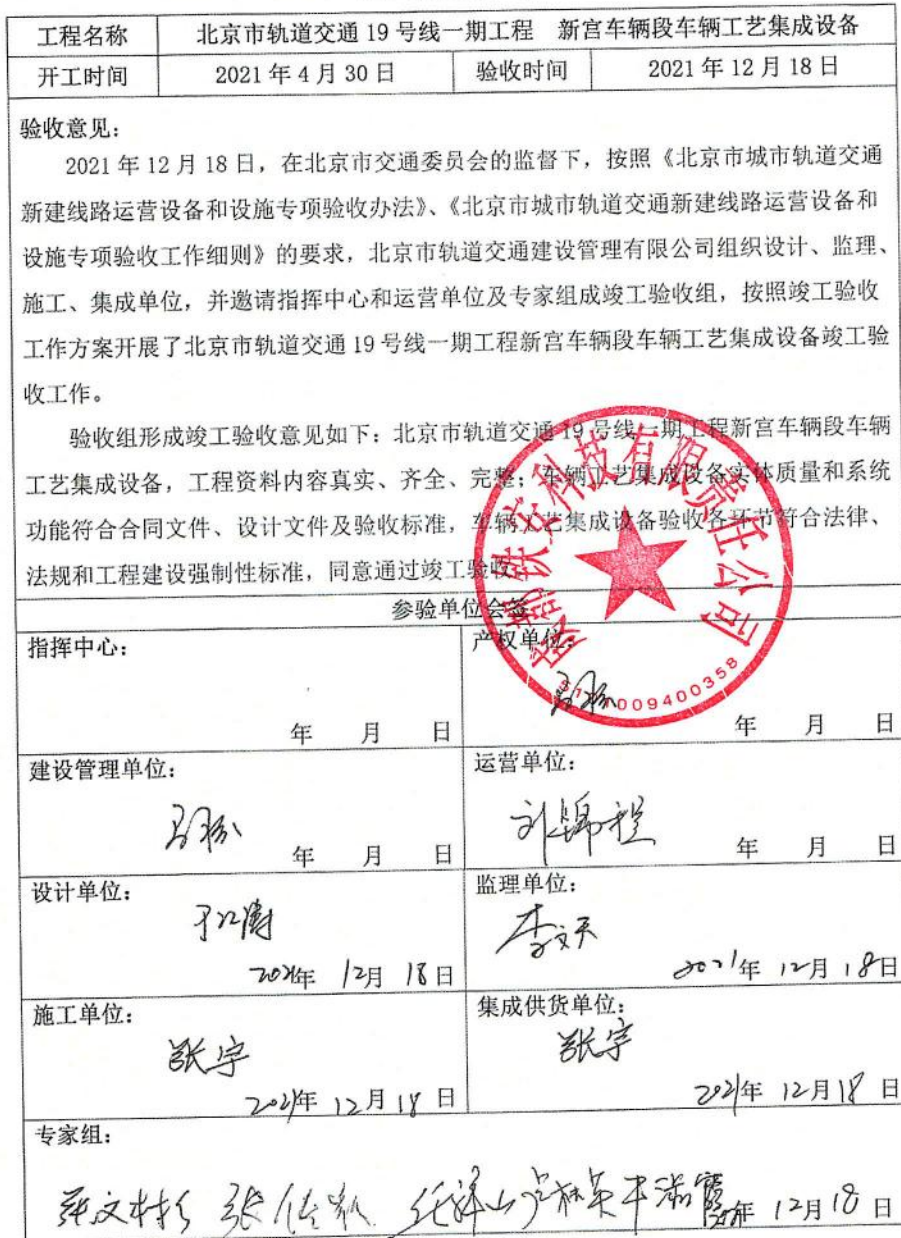 工程名称 北京市轨道交通 19 号线一期工程 新宫车辆段车辆工艺集成设备
开工时间 2021 年 4 月 30 日 验收时间 2021 年 12 月 18 日
验收意见:
2021 年 12 月 18 日，在北京市交通委员会的监督下，按照《北京市城市轨道交通
新建线路运营设备和设施专项验收办法》、《北京市城市轨道交通新建线路运营设备和
设施专项验收工作细则》的要求，北京市轨道交通建设管理有限公司组织设计、监理、
施工、集成单位，并邀请指挥中心和运营单位及专家组成竣工验收组，按照竣工验收
工作方案开展了北京市轨道交通 19 号线一期工程新宫车辆段车辆工艺集成设备竣工验
收工作。
验收组形成竣工验收意见如下：北京市轨道交通 19 号线一期工程新宫车辆段车辆
工艺集成设备，工程资料内容真实、齐全、完整；车辆工艺集成设备实体质量和系统
功能符合合同文件、设计文件及验收标准，车辆工艺集成设备验收各环节符合法律、
法规和工程建设强制性标准，同意通过竣工验收
成都铁安科技有限责任公司
009400358
参验单位会签
指挥中心: 产权单位:
年 月 日 年 月 日
建设管理单位: 运营单位:
刘锦程
年 月 日 年 月 日
设计单位: 监理单位:
李文天
2021年 12月 18日 2021年 12月 18日
施工单位: 集成供货单位:
张宇 张宇
2021年 12月 18日 2021年 12月 18日
专家组:
年 12月 18日